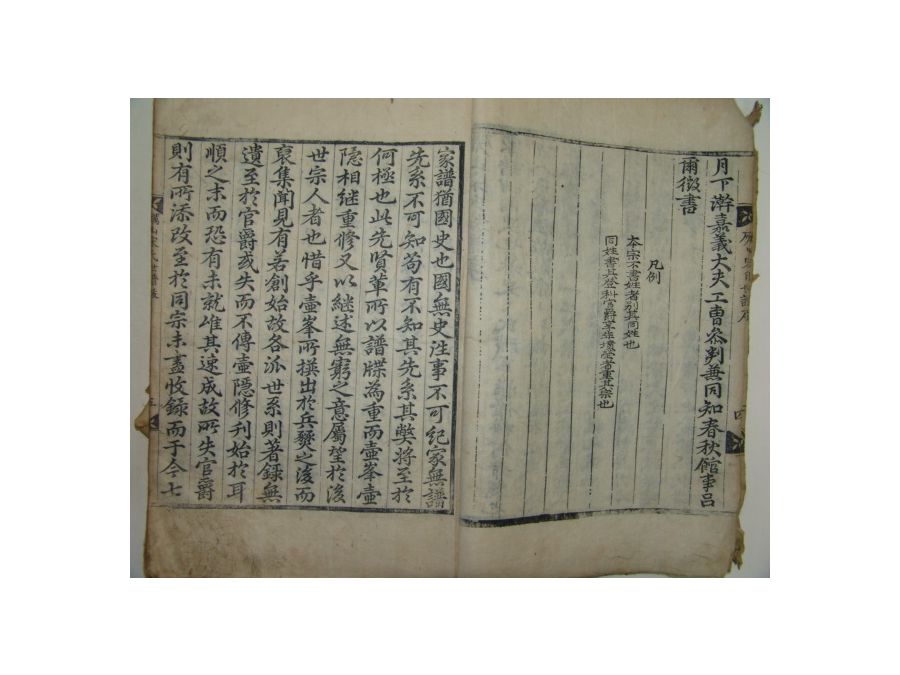 月下澣嘉義大夫工曹參判兼同知春秋館事呂
爾徵書
凡例
本宗不書姓者別其同姓也
同姓書其登科官爵字
家譜猶國史也國無史迬事不可紀家無譜
先系不可知苟有不知其先系其弊將至於
何極也此先賢軰所以譜牒為重而壺峯壺
隠相继重修又以継述無窮之意屬望於後
世宗人者也惜乎壺峯所撰出於兵燹之後而
裒集聞見有若創始故各泒世系則著録無
遺至於官爵或失而不傳壺隠修刋始於耳
順之末而恐有未就雖其速成故所失官爵
則有所添改至於同宗未盡收録而于今七